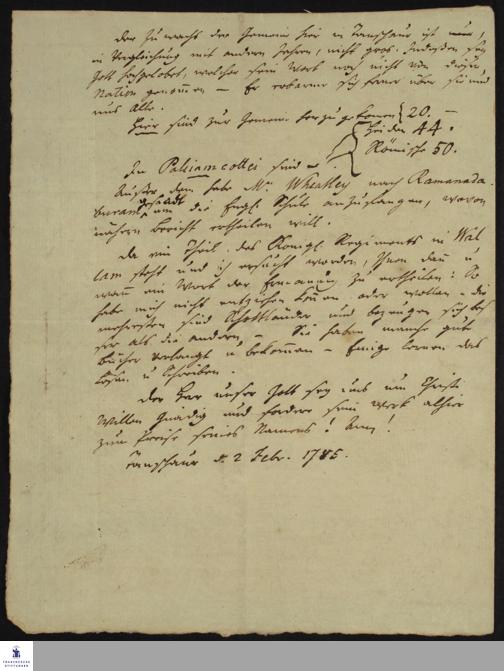 Der Zuwachs der Gemeine hier in Tanschaur ist nun,
in Vergleichung mit andern Jahren, nicht gros. Indessen sey
Gott hochgelobet, welcher sein Werk noch nicht von dieser
Nation genommen — Er erbarme sich ferner über sie und
uns Alle.
Hier sind zur Gemein. herzugekommen 20. —
Heiden 44.
Römische 50.
In Paliamcottei sind
Außer dem habe Mr. Wheatley nach Ramanada
buram gesandt um die Engl. Schule anzufangen, wovon
nähern Bericht ertheilen will.
Da ein Theil des Königl. Regiments in Wal
lam steht und ich ersucht worden, Ihnen dan u
wan ein Wort der Ermanung zu ertheilen: So
habe mich nicht entziehen können oder wollen — die
mehresten sind Schottländer und bezeugen sich bes
ser als die andern. Sie haben manche gute
Bücher verlangt u bekommen — Einige lernen das
Lesen u Schreiben.
Der Herr unser Gott sey uns um Christi
Willen Gnädig und fördere sein Werk alhier
zum Preise seines Namens! Amen!
Tanschaur d. 2 Febr. 1785.
FRANCKESCHE
STIFTUNGEN